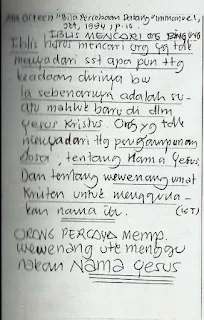 "Bila Percobaan Datang" Immanuel,
1994, p.10.
IBLIS MENCARI ORG YG BINGUNG
Iblis harus mencari org yg tdk
menyadari sst apa pun ttg
keadaan dirinya bw
Ia sebenarnya adalah su-
atu mahluk baru di dlm
Yesus Kristus. Org yg tdk
menyadari ttg pengampunan
dosa, tentang Nama Yesus,
Dan tentang wewenang umat
Kristen untuk mengguna-
kan nama itu.
ORANG PERCAYA memp.
wewenang utk menggu
nakan Nama Yesus